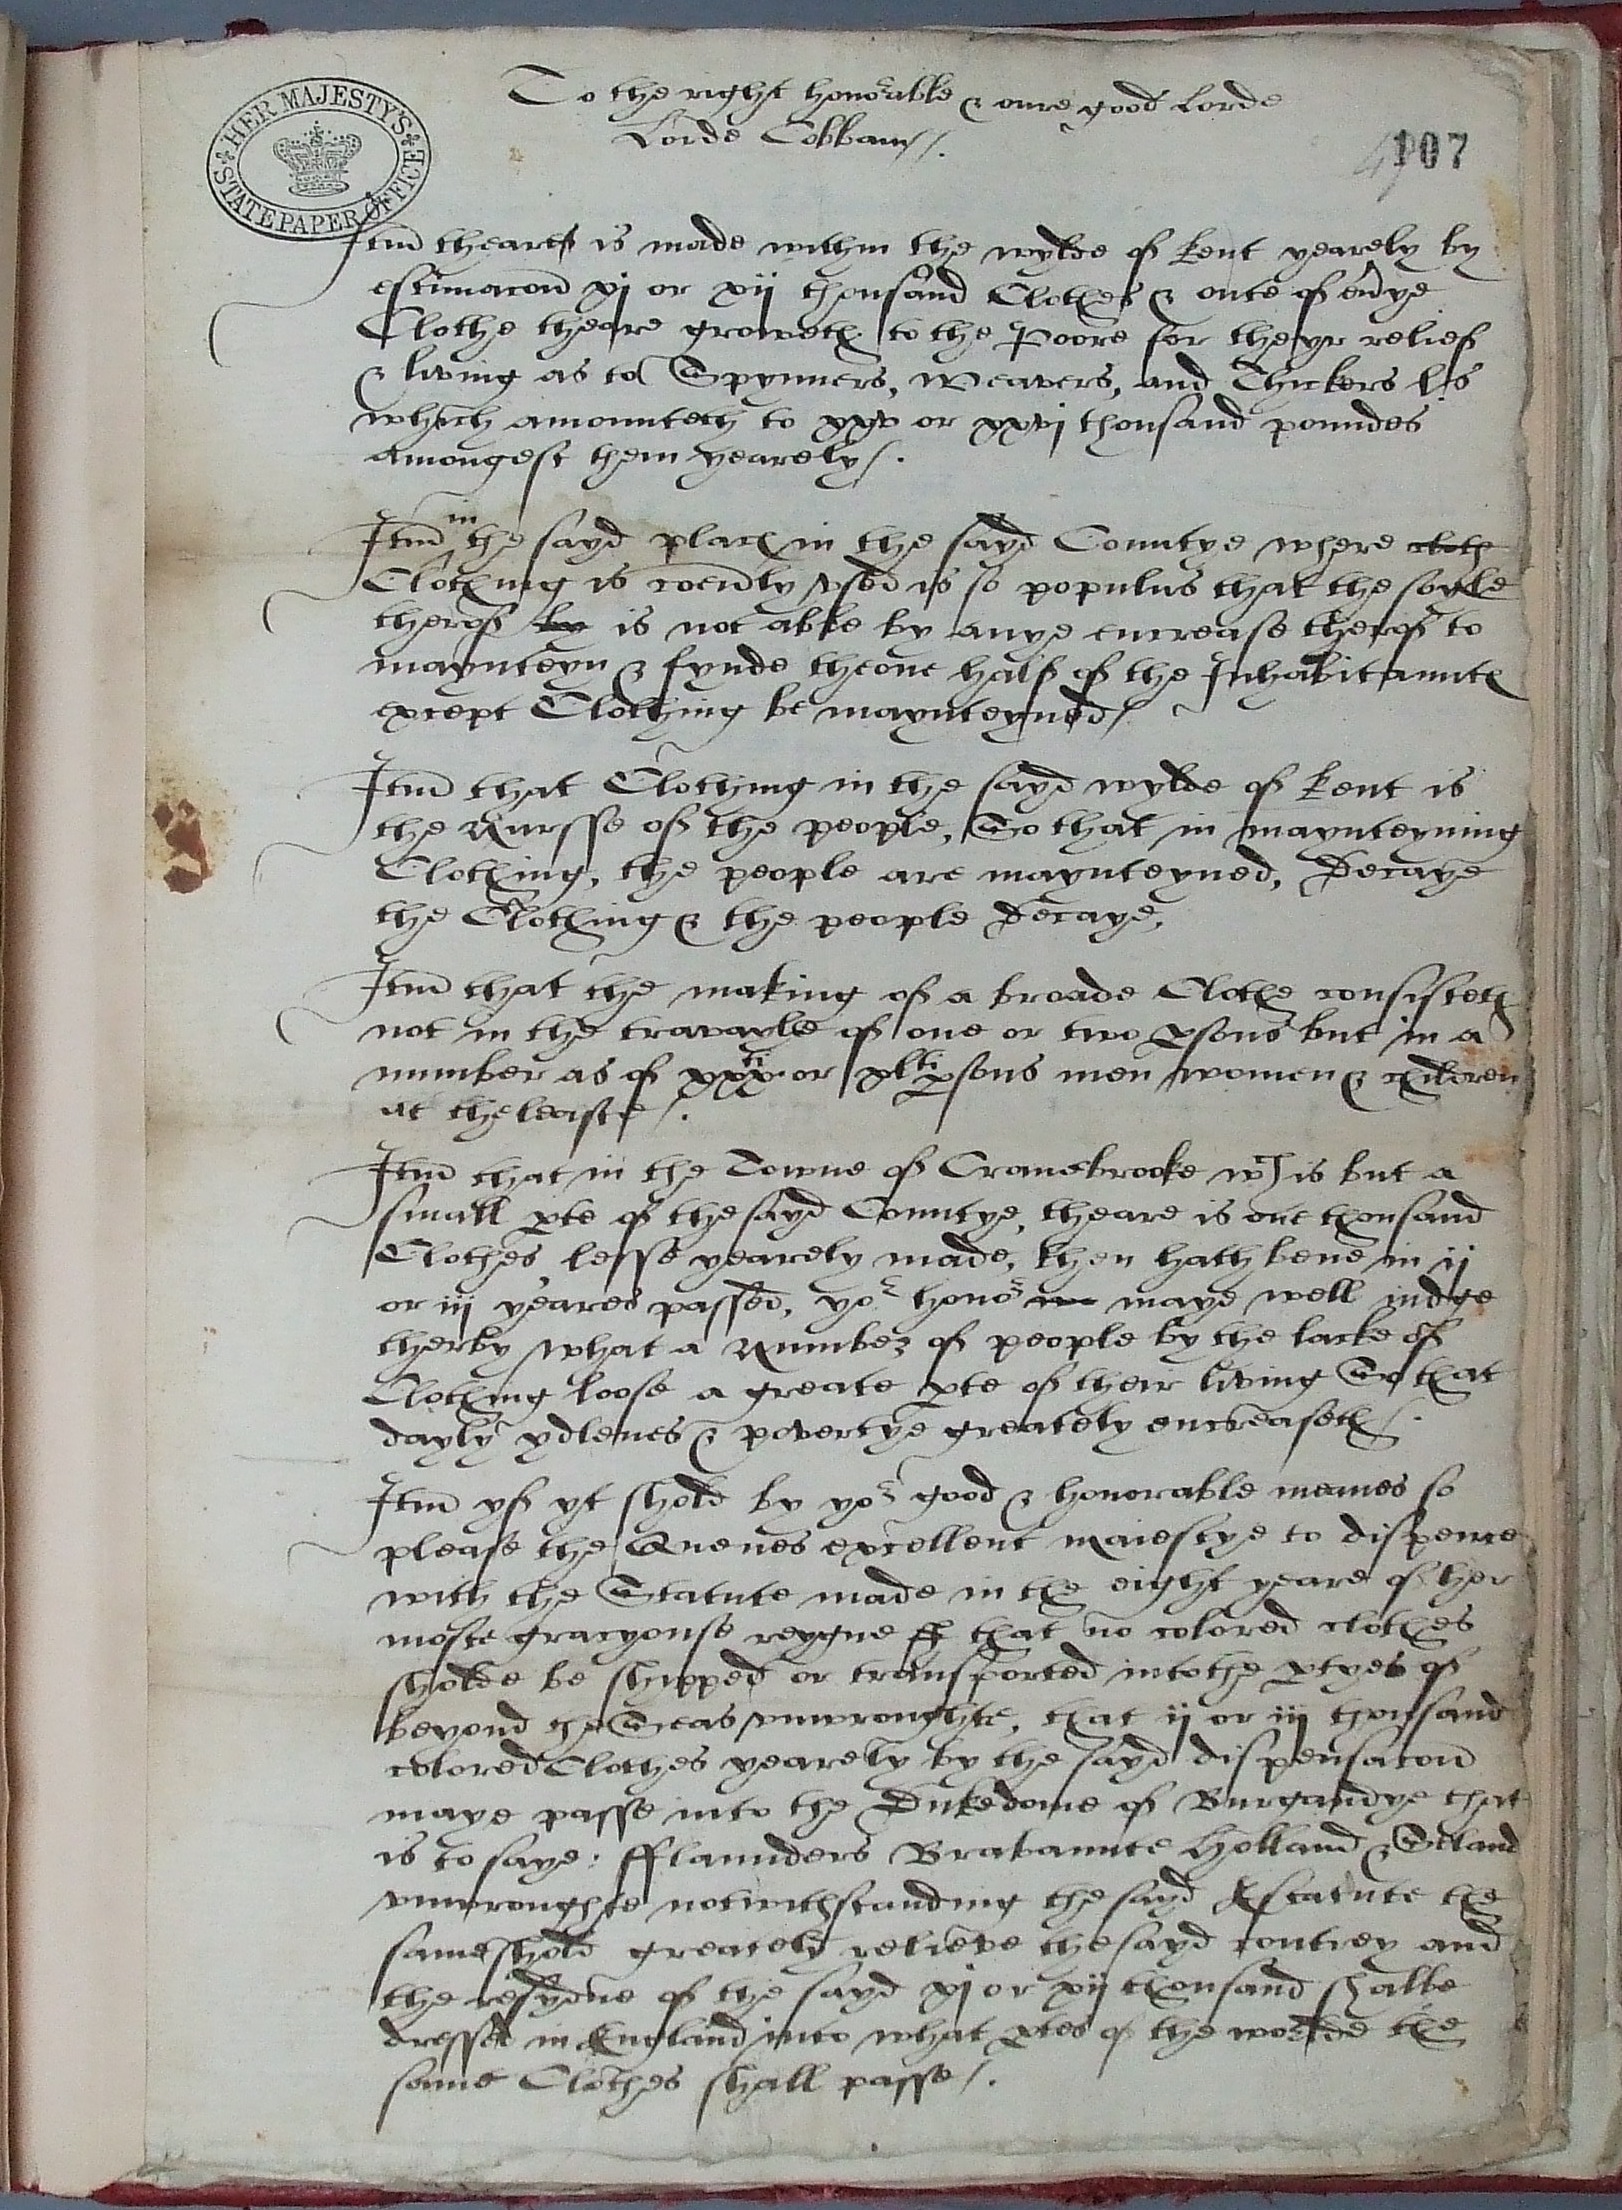 To the right hono^r able & oure good Lorde
Lorde Cobbam /.
HER MAJESTY'S STATE PAPER OFFICE
107
Itm theare is made within the wylde of Kent yearely by
estimacon xj or xij thousand Clothes & oute of eu'ye
Clothe theare groweth to the Poore for theyr relief
& living as to Spynners, Weavers, and Thickers
which amounteth to xxv or xxvj thousand poundes
amongest them yearely /.
Itm in the sayd place in the sayd Countye where cloth
Clothing is vsed is so populus that the soyle
therof by is not able by anye encrease therof to
maynteyn & fynde theone half of the Inhabitauntes
except Clothing be maynteyned /
Itm that Clothing in the sayd wylde of Kent is
the Nursse of the people, So that in maynteyning
Clothing, the people are maynteyned, Decaye
the Clothing & the people Decaye.
Itm that the making of a broade Clothe consisteth
not in the travayle of one or two psons but in a
number as of xxx^ti or xl^ti psons men women & children
at theleaste /.
Itm that in the Towne of Cranebrooke w^ch is but a
small pte of the sayd Countye, theare is one thousand
Clothes lesse yearely made, then hath bene in ij
or iij yeares passed, yo^r hono^r maye well iudge
therby what a Number of people by the lacke of
Clothing loose a greate pte of their living So that
dayly ydlenes & povertye greately encreaseth /.
Itm yf yt shold by yo^r good & honorable meanes so
please the Quenes excellent maiestye to dispence
with the Statute made in the eight yeare of her
moste gracyouse reygne that no colored clothes
sholde be shipped or transported into the ptyes of
beyond the Seas vnwroughte, that ij or iij thousand
colored Clothes yearely by the sayd dispensacon
maye passe into the Dukedome of Burgandye that
is to saye: Fflaunders Brabaunte Holland & Seland
vnwroughte notwithstanding the sayd Estatute the
same shold greately relieve the sayd contrey and
the resydue of the sayd xj or xij thousand shalbe
dressed in England into what ptes of the worlde the
same Clothes shall passe /.